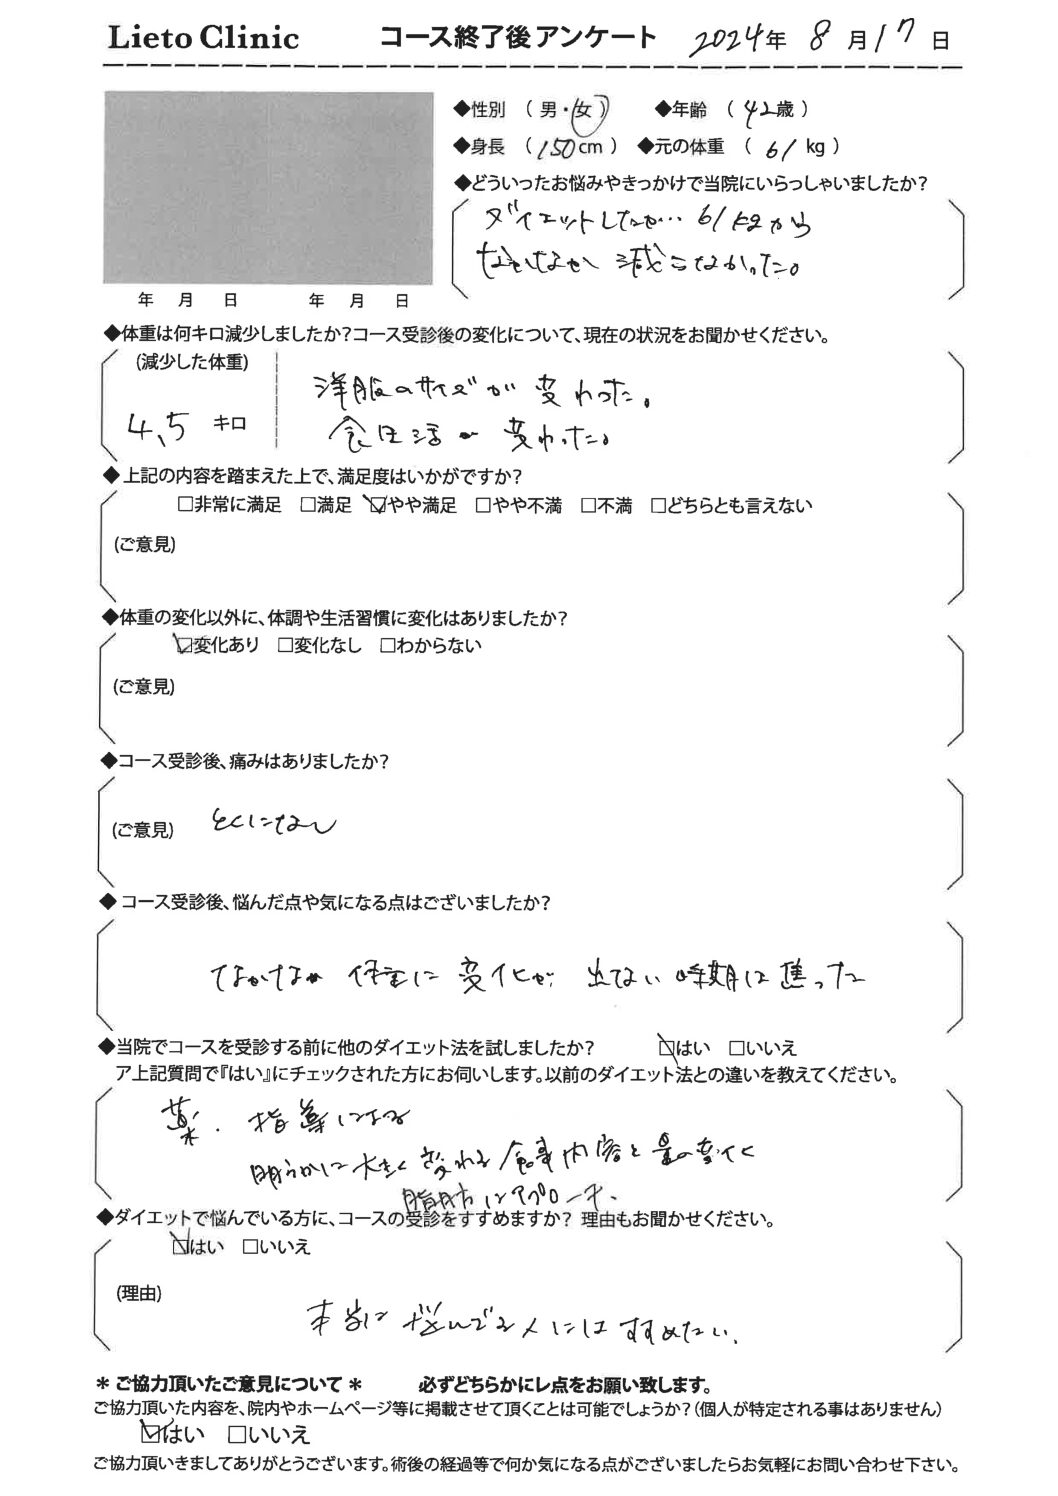 Lieto Clinic コース終了後アンケート 2024年 8月17日
◆性別 （ 男・女 ） ◆年齢 （ 42歳 ）
◆身長 （ 150cm ） ◆元の体重 （ 61 kg ）
◆どういったお悩みやきっかけで当院にいらっしゃいましたか？
ダイエットしたが… 61kgから
なかなか 減らなかった。
年 月 日 年 月 日
◆体重は何キロ減少しましたか？コース受診後の変化について、現在の状況をお聞かせください。
(減少した体重)
4.5 キロ
洋服のサイズが 変わった。
食生活が 変わった。
◆ 上記の内容を踏まえた上で、満足度はいかがですか？
□非常に満足 □満足 ☑やや満足 □やや不満 □不満 □どちらとも言えない
(ご意見)
◆体重の変化以外に、体調や生活習慣に変化はありましたか？
☑変化あり □変化なし □わからない
(ご意見)
◆コース受診後、痛みはありましたか？
(ご意見) とくになし
◆ コース受診後、悩んだ点や気になる点はございましたか？
なかなか 体重に 変化が 出ない 時期は 焦った
◆当院でコースを受診する前に他のダイエット法を試しましたか？ ☑はい □いいえ
ア上記質問で『はい』にチェックされた方にお伺いします。以前のダイエット法との違いを教えてください。
薬・指導による
明らかに 大きく 変わる 食事内容と 量の変化
脂肪にアプローチ.
◆ダイエットで悩んでいる方に、コースの受診をすすめますか？ 理由もお聞かせください。
☑はい □いいえ
(理由)
本当に 悩んでる人には すすめたい.
＊ ご協力頂いたご意見について ＊ 必ずどちらかにレ点をお願い致します。
ご協力頂いた内容を、院内やホームページ等に掲載させて頂くことは可能でしょうか？（個人が特定される事はありません）
☑はい □いいえ
ご協力頂いきましてありがとうございます。術後の経過等で何か気になる点がございましたらお気軽にお問い合わせ下さい。